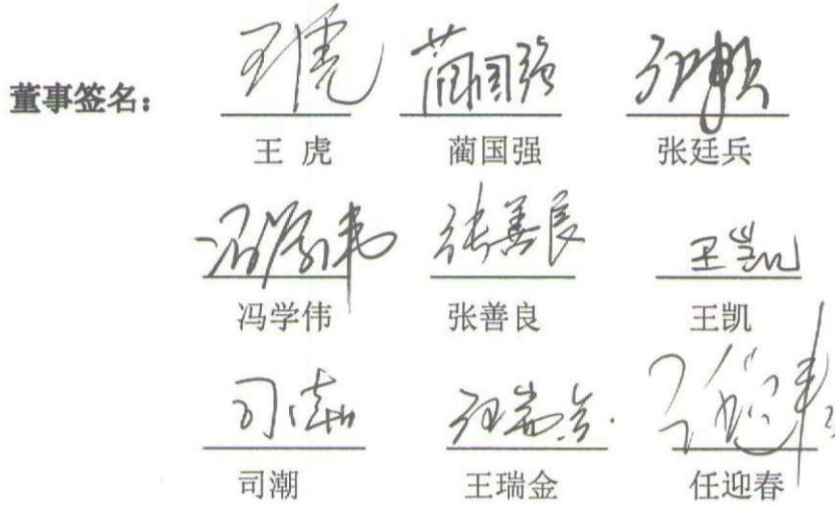 董事签名： 王虎 蔺国强
王 虎 蔺国强 张廷兵
冯学伟 张善良 王凯
冯学伟 张善良 王凯
司潮
司潮 王瑞金 任迎春